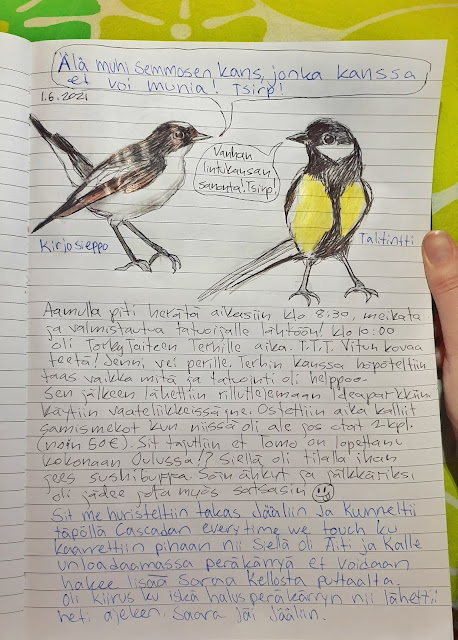 Älä muni semmosen kans, jonka kanssa
et voi munia! Tsirp!
1.6.2021
Vanhan
lintukansan
sanonta! Tsirp!
Kirjosieppo
Talitintti
Aamulla piti herätä aikasiin klo 8:30, meikata
ja valmistautua tatuoijalle lähtöön! klo 10:00
oli Torkytaiteen Terhille aika. T.T.T. Vitun kovaa
teetä! Jenni vei perille. Terhin kanssa höpöteltiin
taas vaikka mitä ja tatuointi oli helppoo.
Sen jälkeen lähettiin rillutlejemaan Ideaparkkiin
käytiin vaateliikkeissä jne. Ostettiin aika kalliit
samismekot kun niissä oli ale jos otat 2 kpl.
(noin 50€). Sit tajuttiin et Tomo on lopettanu
kokonaan Oulussa!? Siellä oli tilalla ihan
jees sushibuffa. Söin ähkyt ja jälkkäriks
oli jädee jota myös satsasin
Sit me huristeltiin takas Jääliin ja kuunneltii
täpöllä Cascadan everytime we touch ku
kaarrettiin pihaan nii siellä oli Äiti ja Kalle
unloadaamassa peräkärryä et voidaan
hakee lisää Soraa Kellosta puttaalta.
Oli kiirus ku iskä halus peräkärryn nii lähettii
heti ajeken. Saara jäi Jääliin.